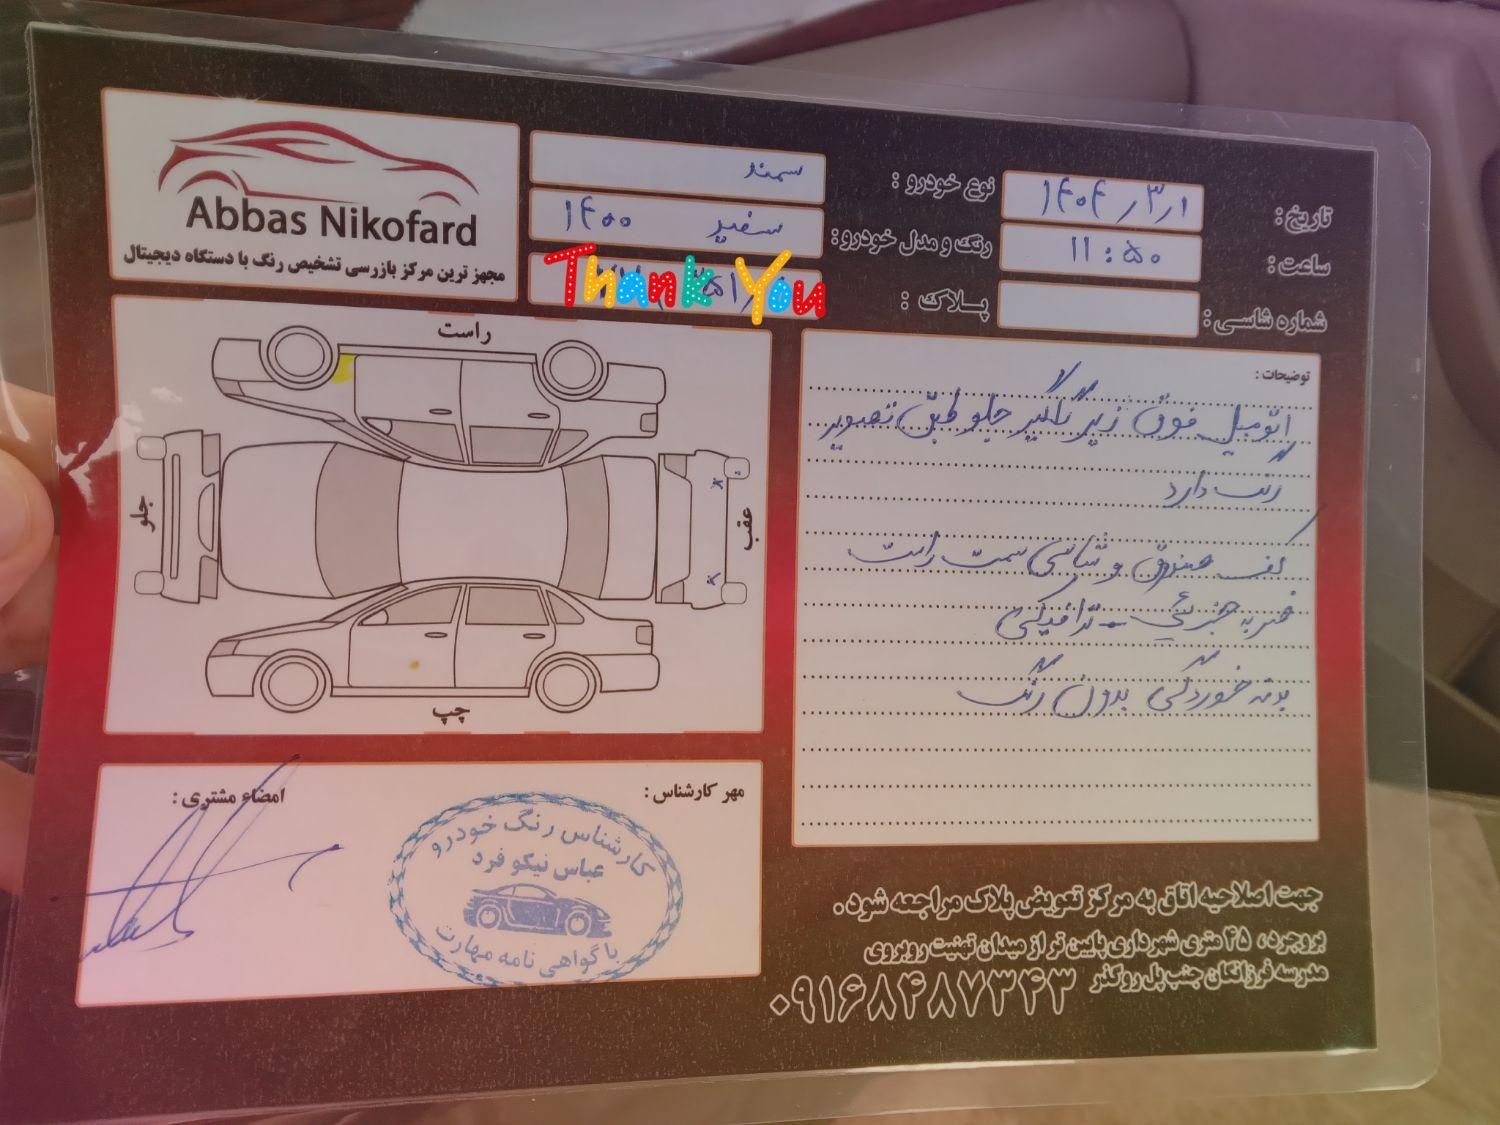 Abbas Nikofard
مجهز ترین مرکز بازرسی تشخیص رنگ با دستگاه دیجیتال
نوع خودرو : سمند
رنگ و مدل خودرو : سفید ۱۴۰۰
پــلاک :
Thank You
تاریخ : ۱۴۰۴٫۳٫۱
ساعت : ۱۱:۵۰
شماره شاسی :
راست
جلو
عقب
چپ
توضیحات :
اتومبیل فوق زیر گلگیر جلو طبق تصویر
رنگ دارد
کف صندوق و شاسی سمت راست
ضربه جزئی - ترافیکی
بتنه خوردگی بدون رنگ
امضاء مشتری :
مهر کارشناس :
کارشناس رنگ خودرو
عباس نیکو فرد
با گواهی نامه مهارت
جهت اصلاحیه اتاق به مرکز تعویض پلاک مراجعه شود.
بروجرد، ۴۵ متری شهرداری پایین تر از میدان تهنیت روبروی
مدرسه فرزانگان جنب پل روگذر ۰۹۱۶۸۴۸۷۳۴۳